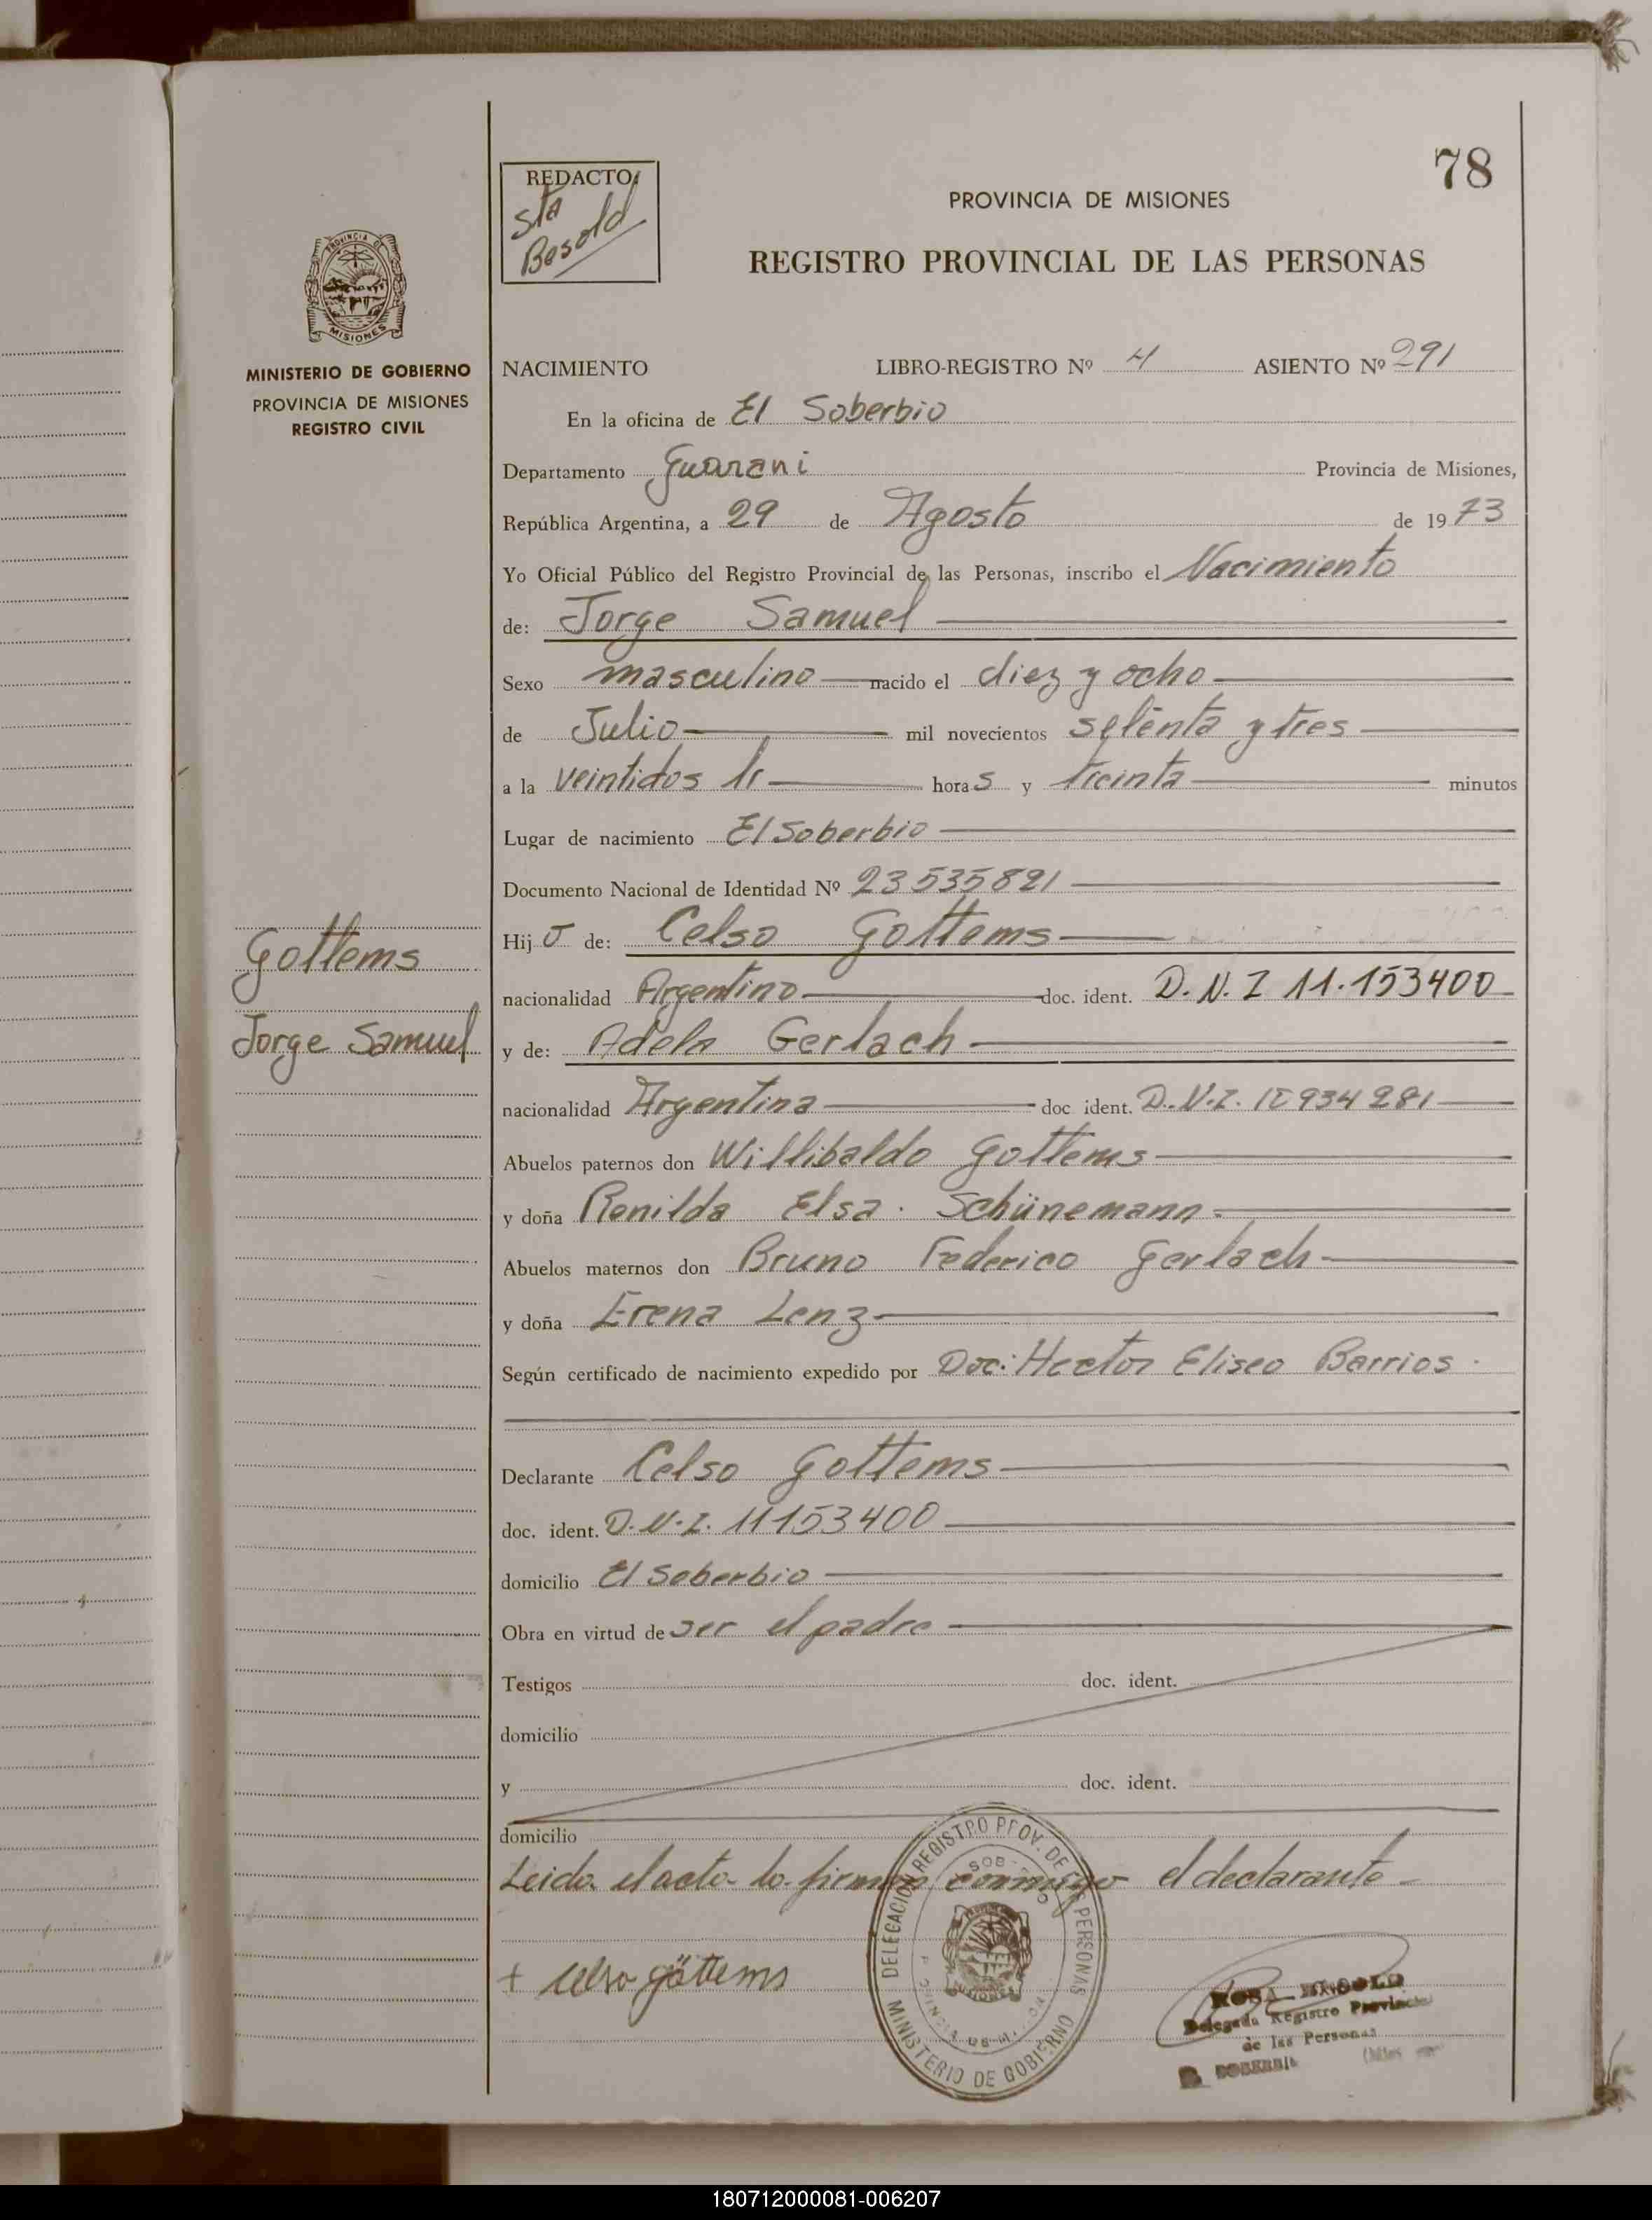 78
REDACTO:
Sta
Basold
PROVINCIA DE MISIONES
REGISTRO PROVINCIAL DE LAS PERSONAS
MISIONES
MINISTERIO DE GOBIERNO
PROVINCIA DE MISIONES
REGISTRO CIVIL
NACIMIENTO LIBRO-REGISTRO Nº 4 ASIENTO Nº 291
En la oficina de El Soberbio
Departamento Guarani Provincia de Misiones,
República Argentina, a 29 de Agosto de 1973
Yo Oficial Público del Registro Provincial de las Personas, inscribo el Nacimiento
de: Jorge Samuel
Sexo masculino nacido el diez y ocho
de Julio mil novecientos setenta y tres
a la veintidos hr horas y treinta minutos
Lugar de nacimiento El Soberbio
Documento Nacional de Identidad Nº 23535821
Hijo de: Celso Gottems
nacionalidad Argentino doc. ident. D.N.I 11.153400
y de: Adela Gerlach
nacionalidad Argentina doc. ident. D.N.I. 10934281
Abuelos paternos don Willibaldo Gottems
y doña Renilda Elsa. Schünemann.
Abuelos maternos don Bruno Federico Gerlach
y doña Erena Lenz
Según certificado de nacimiento expedido por Doc: Hector Eliseo Barrios.
Declarante Celso Gottems
doc. ident. D.N.I. 11153400
domicilio El Soberbio
Obra en virtud de ser el padre
Testigos doc. ident.
domicilio
y doc. ident.
domicilio
Leida el acta la firman conmigo el declarante
+ Celso göttems
Gottems
Jorge Samuel
DELEGACION REGISTRO PROV. DE LAS PERSONAS
MINISTERIO DE GOBIERNO
MISIONES
ROSA
Delegada Registro Provincial
de las Personas
180712000081-006207